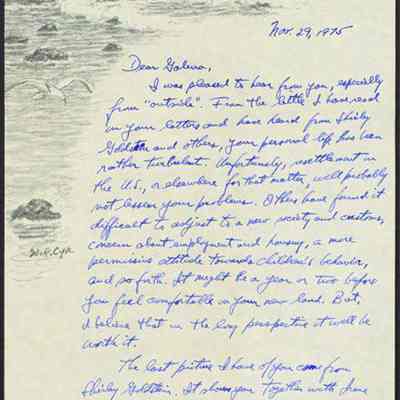 Nov. 29, 1975
Dear Galina,
I was pleased to hear from you, especially
from "outside". From the little I have read
in your letters and have heard from Shirley
Goldstein and others, your personal life has been
rather turbulent. Unfortunately, resettlement in
the U.S., or elsewhere for that matter, will probably
not lessen your problems. Others have found it
difficult to adjust to a new society and customs,
concern about employment and housing, a more
permissive attitude towards children's behavior,
and so forth. It might be a year or two before
you feel comfortable in your new land. But,
I believe that in the long perspective it will be
worth it.
The last picture I have of you came from
Shirley Goldstein. It shows you together with